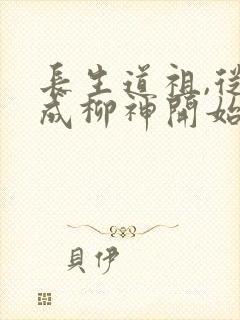 長生道祖,從
成柳神開始
貝伊